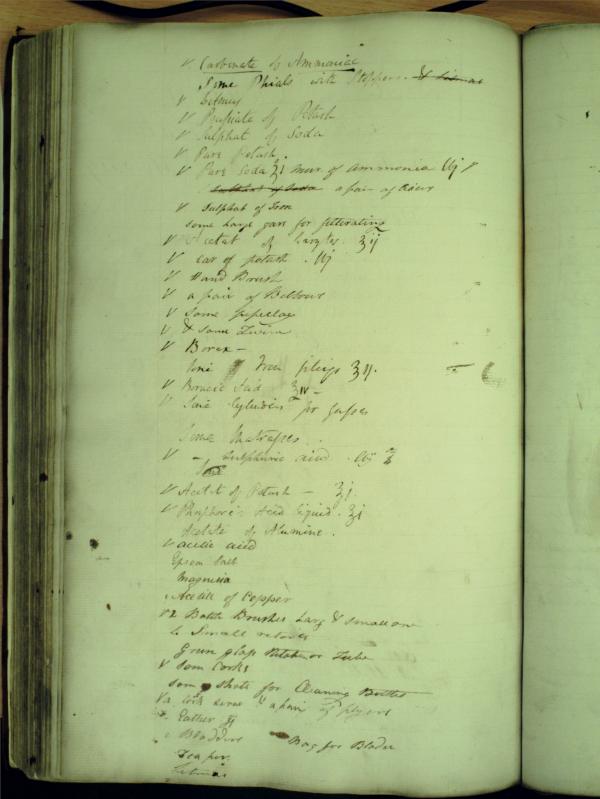 v Carbonate of Ammoniac
Some Phials with Stoppers
v Litmus
v Prussiate of Potash
v Sulphat of Soda
v Pure Potash.
v Pure Soda ℥j Mur. of Ammonia ℔j
Sulphat of Soda a pair of
v Sulphat of Iron
some Large for filterating
v Acetat of barytes ℥ij
v car of potash . ℔j
v Hand Brush
v a pair of Bellows
v Some
v & some Twine
v Borax –
Iron filings ℥ij.
v Boracic Acid ℥iv –
v Some Cylinders for gasses
Some Matrasses
v Sulphuric acid
v Acetit of Potash – ℥j.
v Phosphoric Acid liquid. ℥j
Acetite of Alumine.
v acetic acid
Epsom Salt
Magnesia
Acetite of Copper
v 2 Bottle Brushes Larg & small one
Small retorts
green glass Tube
v som Corks
som shots for Cleaning Bottles
v a Cork screw & a pair of plyers
Eather
Bladders Bag for Bladder
Tea pot
Litmus